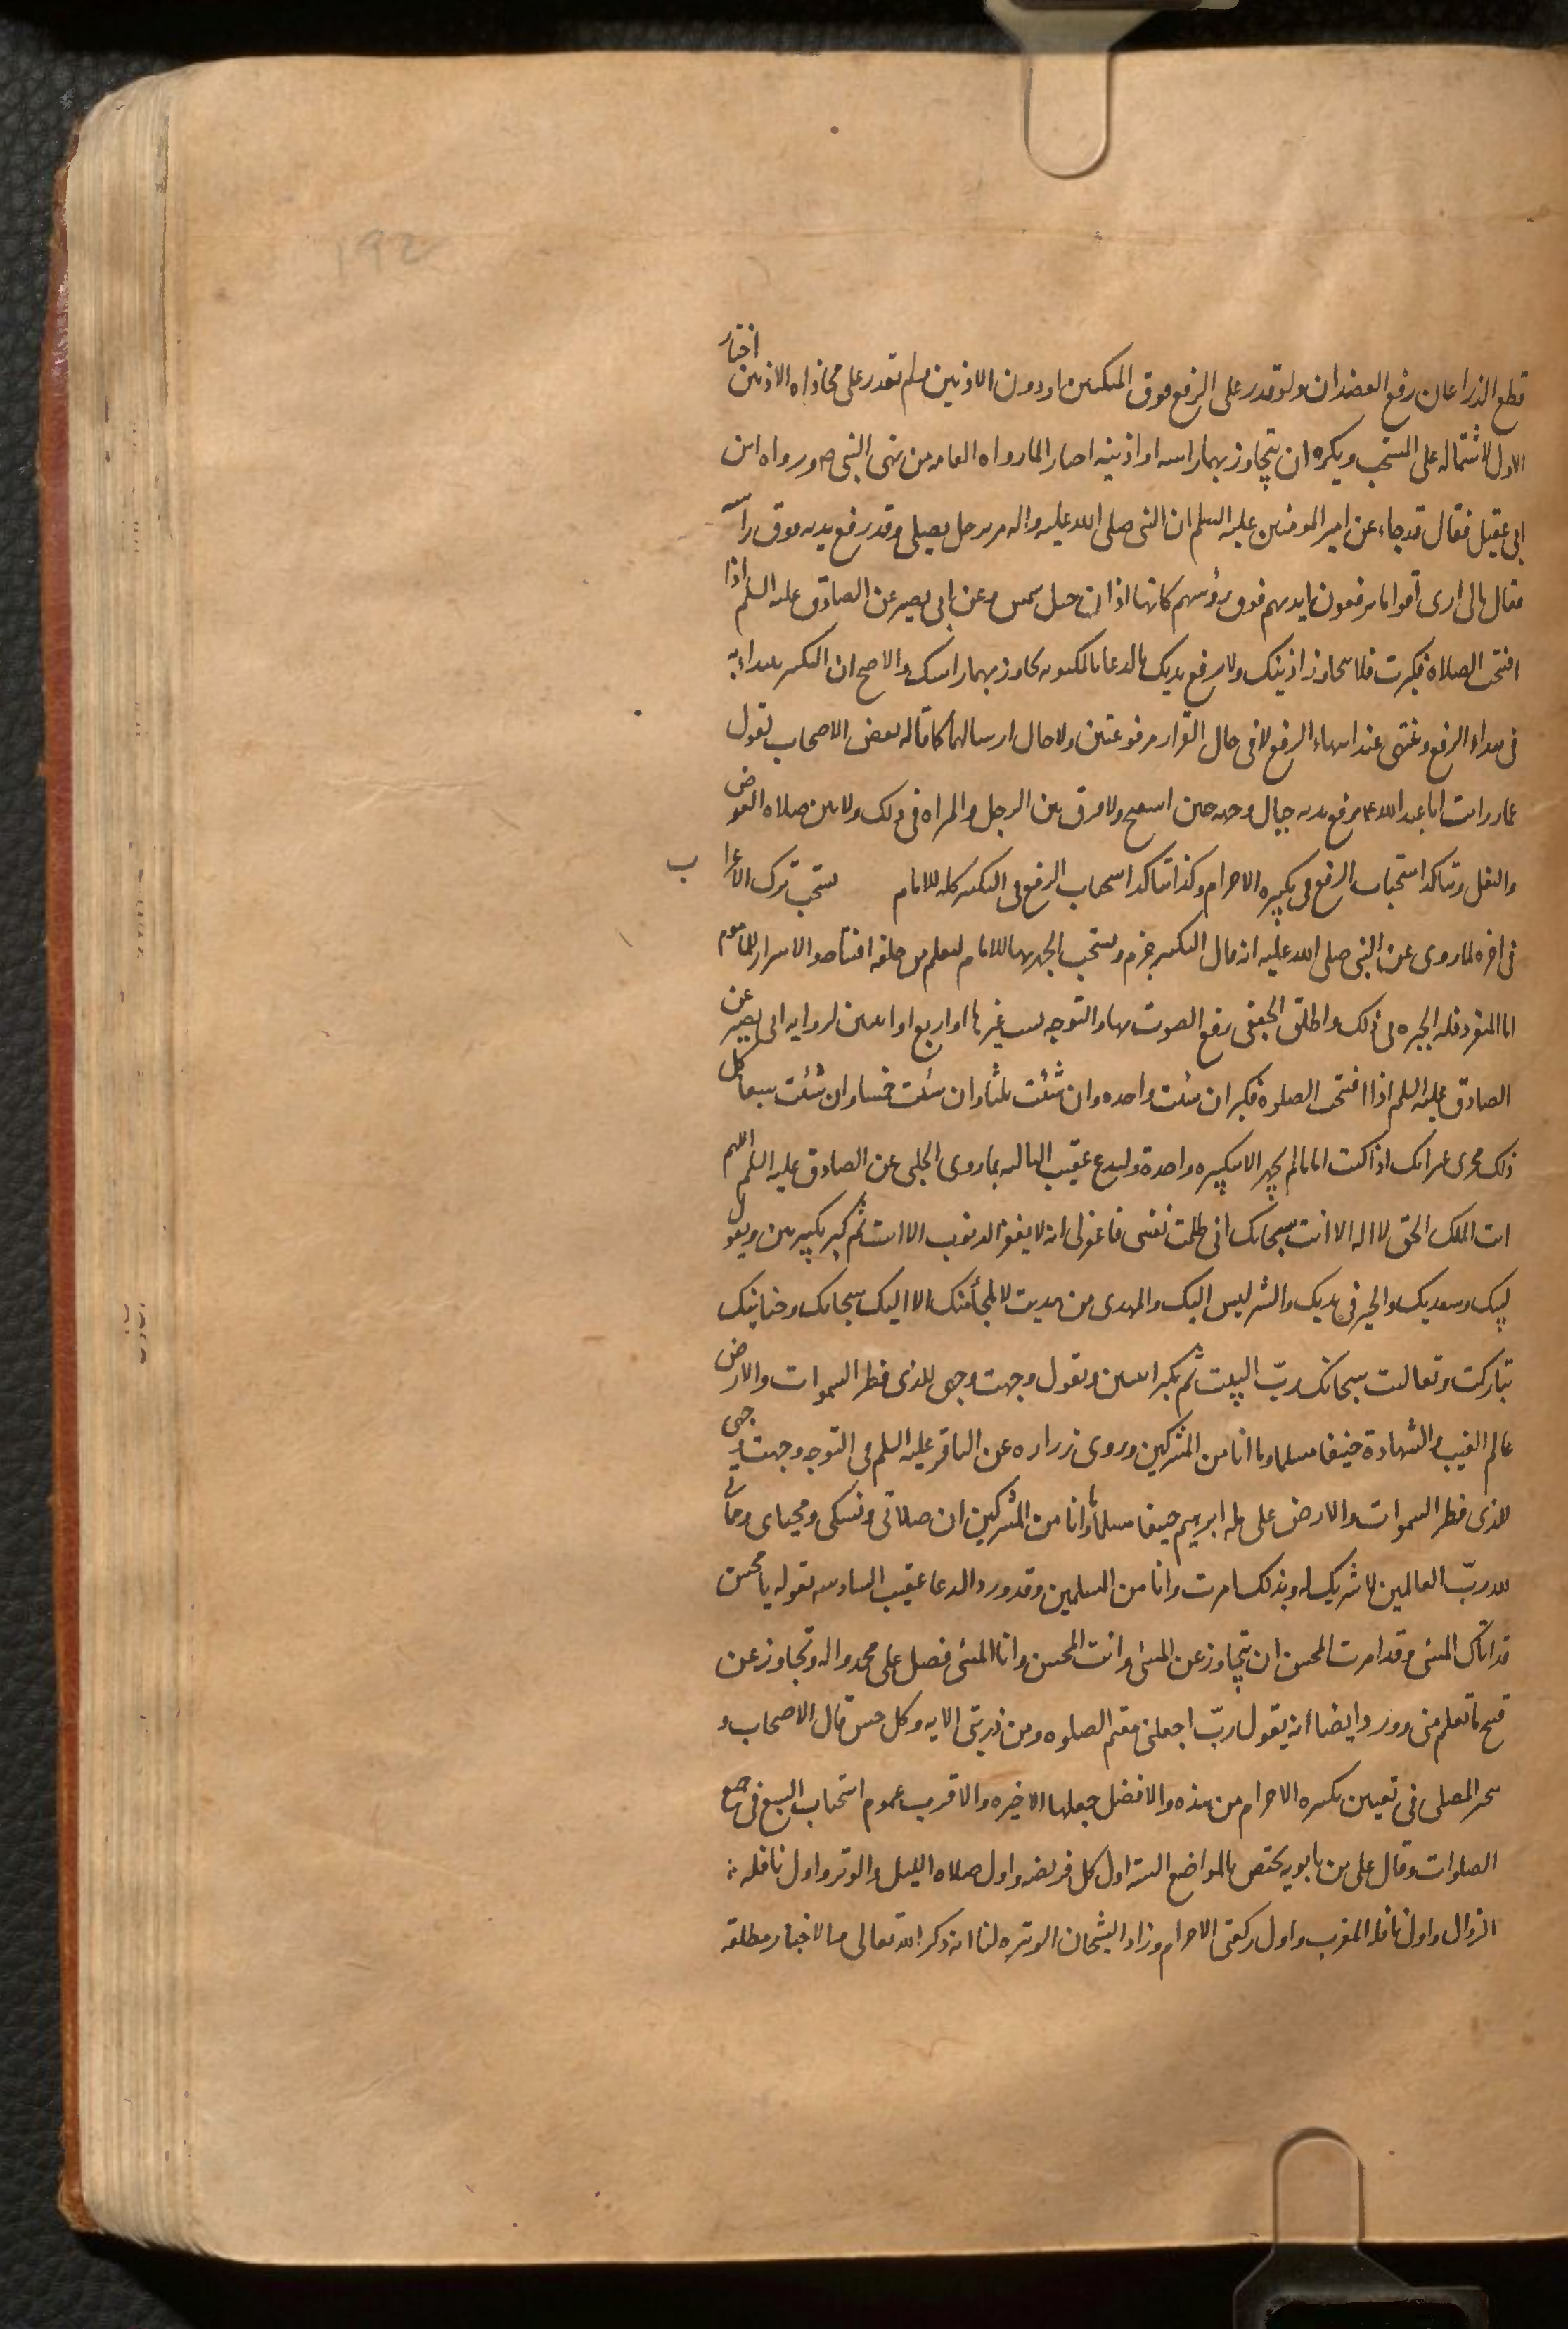 192
قطع الذراعان رفع العضدان ولو قدر على الرفع فوق المنكبين او دون الاذنين ولم تقدر على محاذاه الاذنين اختار
الاول لاشتماله على المستحب ويكره ان يتجاوز بهما راسه او اذنيه اختيارا لما رواه العامه من نهى النبى ص ورواه ابن
ابى عقيل فقال قد جاء عن امير المومنين عليه السلم ان النبى صلى الله عليه واله مر برجل يصلى وقد رفع يديه فوق راسه
فقال مالى ارى اقواما يرفعون ايديهم فوق رؤسهم كانها اذان خيل شمس وعن ابى بصير عن الصادق عليه السلم اذا
افتتحت الصلاة فكبرت فلا تتجاوز اذنيك ولا ترفع يديك بالدعا بالمكتوبه تجاوز بهما راسك والاصح ان التكبير يبتداء به
فى ابتداء الرفع وينتهى عند انتهاء الرفع لا فى حال القرار مرفوعتين ولا حال ارسالهما كما قاله بعض الاصحاب لقول
عمار رايت ابا عبد الله ع يرفع يديه حيال وجهه حين استفتح ولا فرق بين الرجل والمراه فى ذلك ولا بين صلاه الفرض
والنفل ويتاكد استحباب الرفع فى تكبيره الاحرام وكذا يتاكد استحباب الرفع فى التكبير كله للامام يستحب ترك الاعراب
فى اخره لما روى عن النبى صلى الله عليه انه قال التكبير جزم ويستحب الجهر بها للامام ليعلم من خلفه افتتاحه والاسرار للماموم
اما المنفرد فله الخيره فى ذلك واطلق الجعفى رفع الصوت بها والتوجه بست غيرها او اربع او اثنتين لروايه ابى بصير عن
الصادق عليه السلم اذا افتتحت الصلوه فكبر ان شئت واحده وان شئت ثلثا وان شئت خمسا وان شئت سبعا كل
ذلك مجزى غير انك اذا كنت اماما لم تجهر الا بتكبيره واحدة وليدع عقيب الثالثه بما روى الحلبى عن الصادق عليه السلم اللهم
انت الملك الحق لا اله الا انت سبحانك انى ظلمت نفسى فاغفر لى انه لا يغفر الذنوب الا انت ثم كبر تكبيرتين ويقول
لبيك وسعديك والخير فى يديك والشر ليس اليك والمهدى من هديت لا ملجأ منك الا اليك سبحانك وحنانيك
تباركت وتعاليت سبحانك ربّ البيت ثم يكبر اثنتين وتقول وجهت وجهى للذى فطر السموات والارض
عالم الغيب والشهادة حنيفا مسلما وما انا من المشركين وروى زراره عن الباقر عليه السلم فى التوجه وجهت وجهى
للذى فطر السموات والارض على مله ابرهيم حنيفا مسلما وما انا من المشركين ان صلاتى ونسكى ومحياى ومماتى
لله ربّ العالمين لا شريك له وبذلك امرت وانا من المسلمين وقد ورد الدعا عقيب السادسه بقوله يا محسن
قد اتاك المسئ وقد امرت المحسن ان يتجاوز عن المسئ وانت المحسن وانا المسئ فصل على محمد واله وتجاوز عن
قبيح ما تعلم منى وورد ايضا أنه يقول ربّ اجعلنى مقيم الصلوه ومن ذريتى الايه وكل حسن قال الاصحاب و
يتخير المصلى فى تعيين تكبيره الاحرام من هذه والافضل جعلها الاخيره والاقرب عموم استحباب السبع فى جميع
الصلوات وقال على بن بابويه يختص بالمواضع السته اول كل فريضه واول صلاه الليل والوتر واول نافله
الزوال واول نافله المغرب واول ركعتى الاحرام وزاد الشيخان الوتيره لنا انه ذكر الله تعالى والاخبار مطلقه